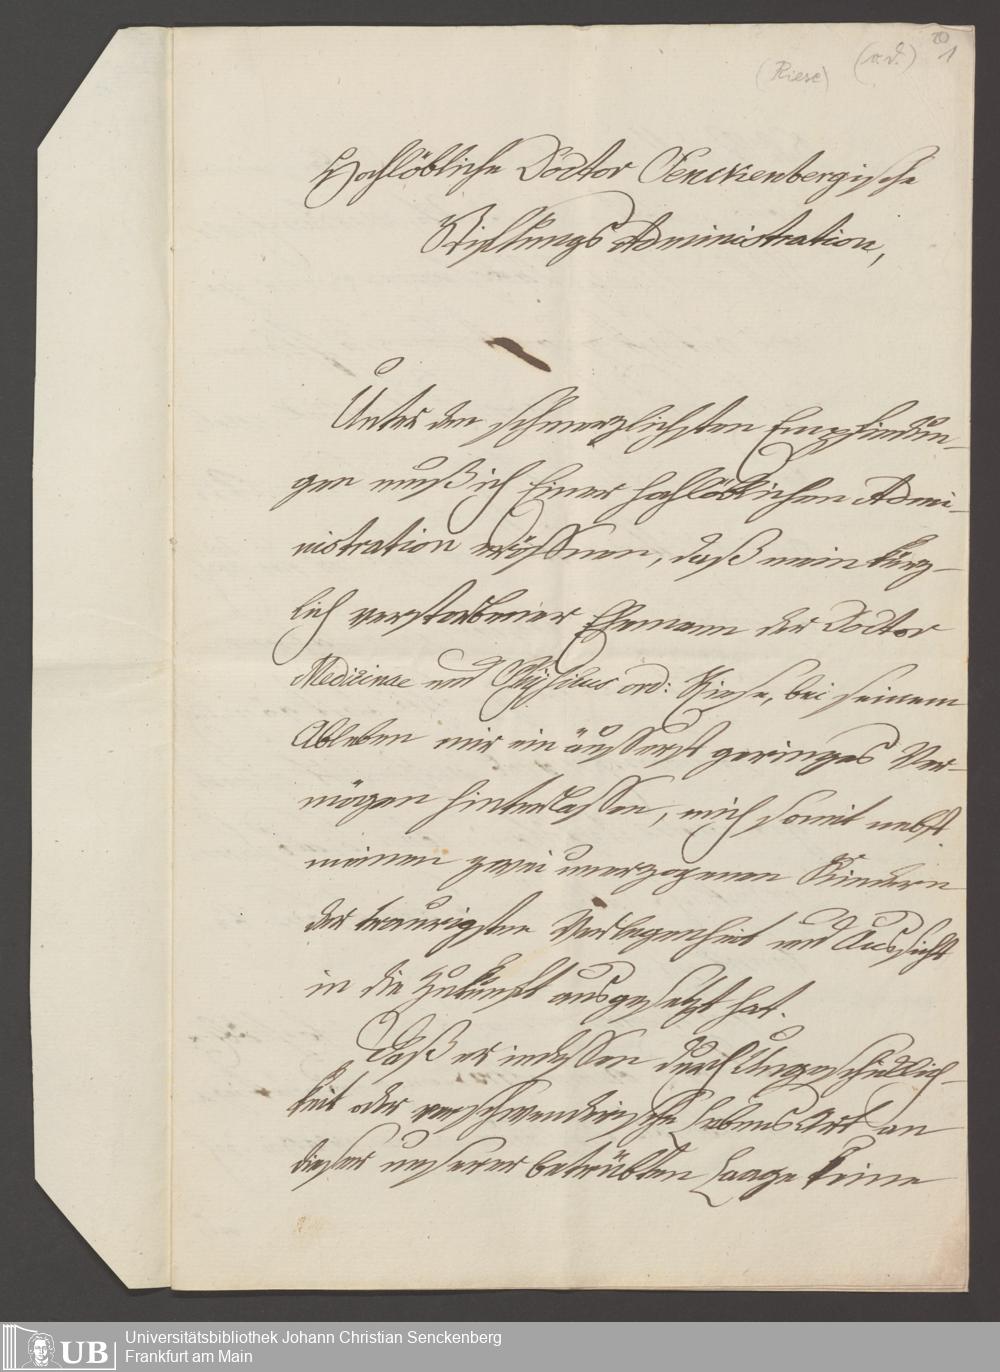 20
(Riese) (o. d.) 1
Hochlöbliche Doctor Senckenbergische
Stiftungs Administration,
Unter den schmerzlichsten Empfindun-
gen muß ich Einer hochlöblichen Admi-
nistration eröffnen, daß mein kürz-
lich verstorbener Ehemann der Doctor
Medicinae und Physikus ord: Riese, bei seinem
Ableben mir ein äusserst geringes Ver-
mögen hinterlassen, mich somit nebst
meinen zwei unerzogenen Kindern
der traurigsten Verlegenheit und Aussicht
in die Zukunft ausgesetzt hat.
Daß er indessen durch Ungeschicklich-
keit oder verschwenderische Lebens Art an
dieser unserer betrübten Laage keine
UB Universitätsbibliothek Johann Christian Senckenberg
Frankfurt am Main